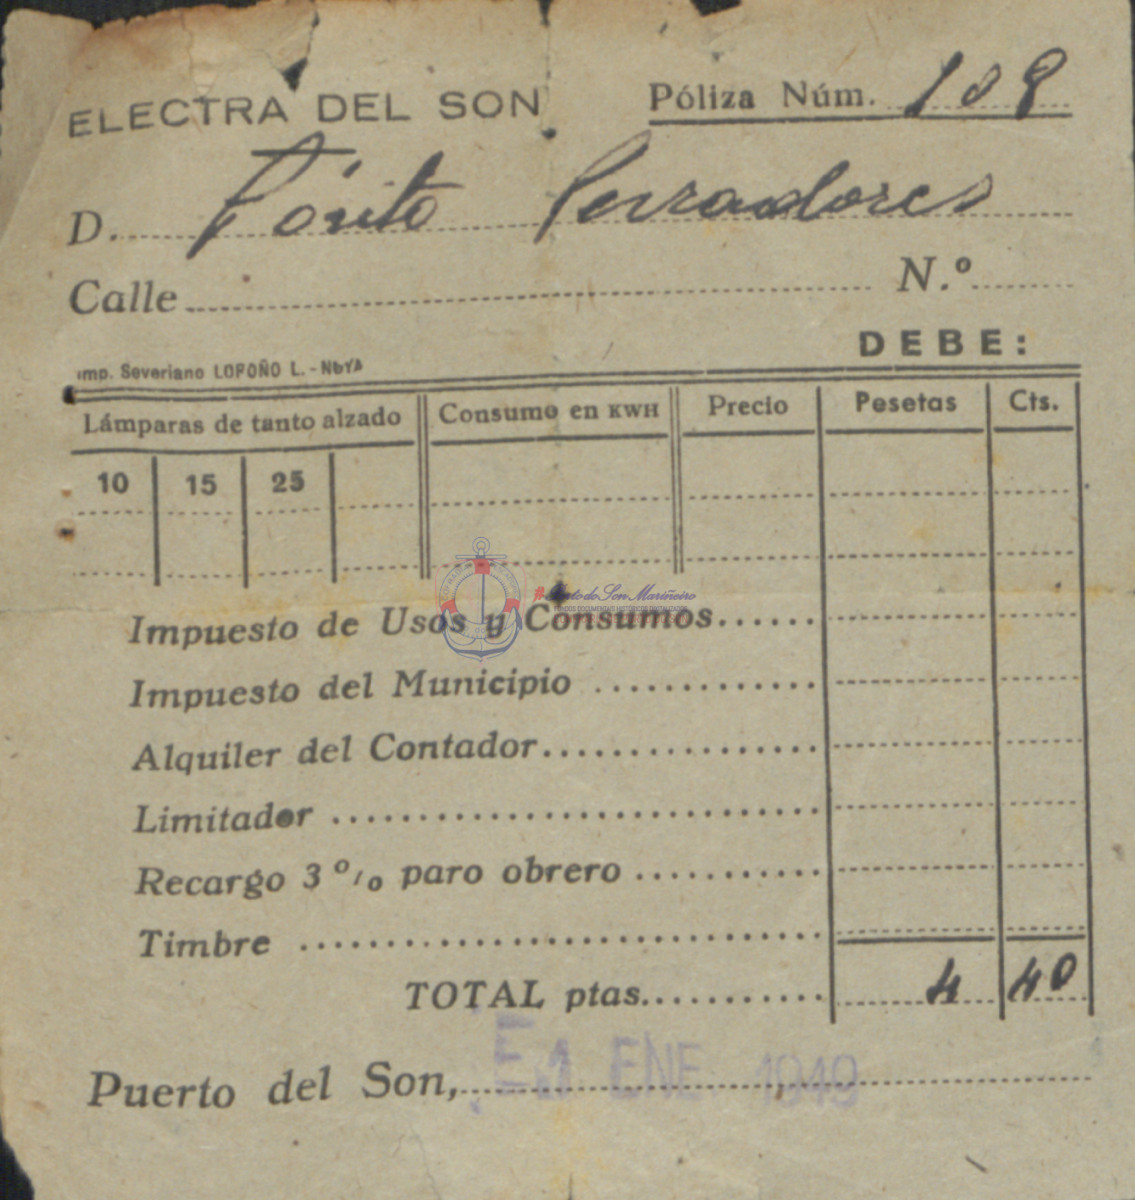 ELECTRA DEL SON
Póliza Núm. 108
D. Tónito Cerradores
Calle N.º
DEBE:
Imp. Severiano LOPOÑO L. - NOYA
Lámparas de tanto alzado Consumo en KWH Precio Pesetas Cts.
10 15 25
#Porto do Son Mariñeiro
Impuesto de Usos y Consumos
Impuesto del Municipio
Alquiler del Contador
Limitador
Recargo 3 % paro obrero
Timbre
TOTAL ptas. 4 40
Puerto del Son, ENE. 1949